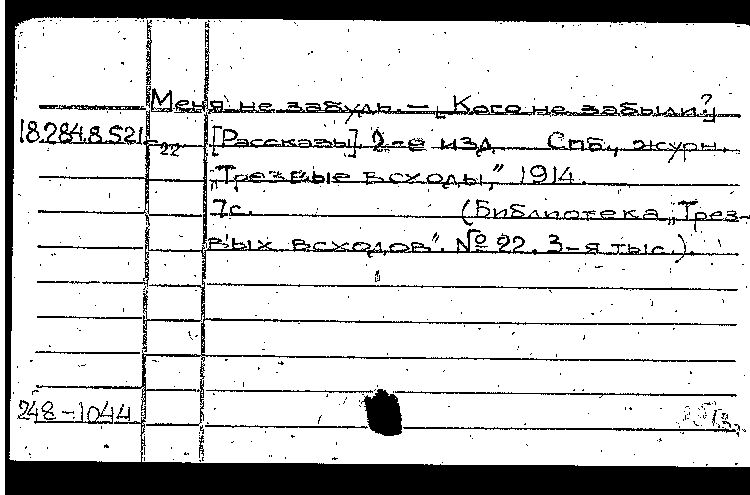 Меня не забудь. – [Кого не забыли?]
18.284.8.521
-22
[Рассказы]. 2-е изд. Спб., журн.
„Трезвые всходы," 1914.
7с. (Библиотека „Трез-
вых всходов". № 22. 3-я тыс.).
248-1044